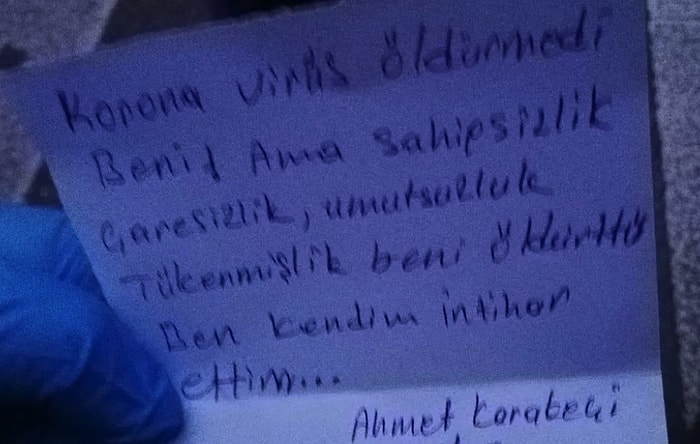 Korona virüs öldürmedi
Beni! Ama sahipsizlik
Çaresizlik, umutsuzluk
Tükenmişlik beni öldürttü
Ben kendim intihar
ettim...
Ahmet